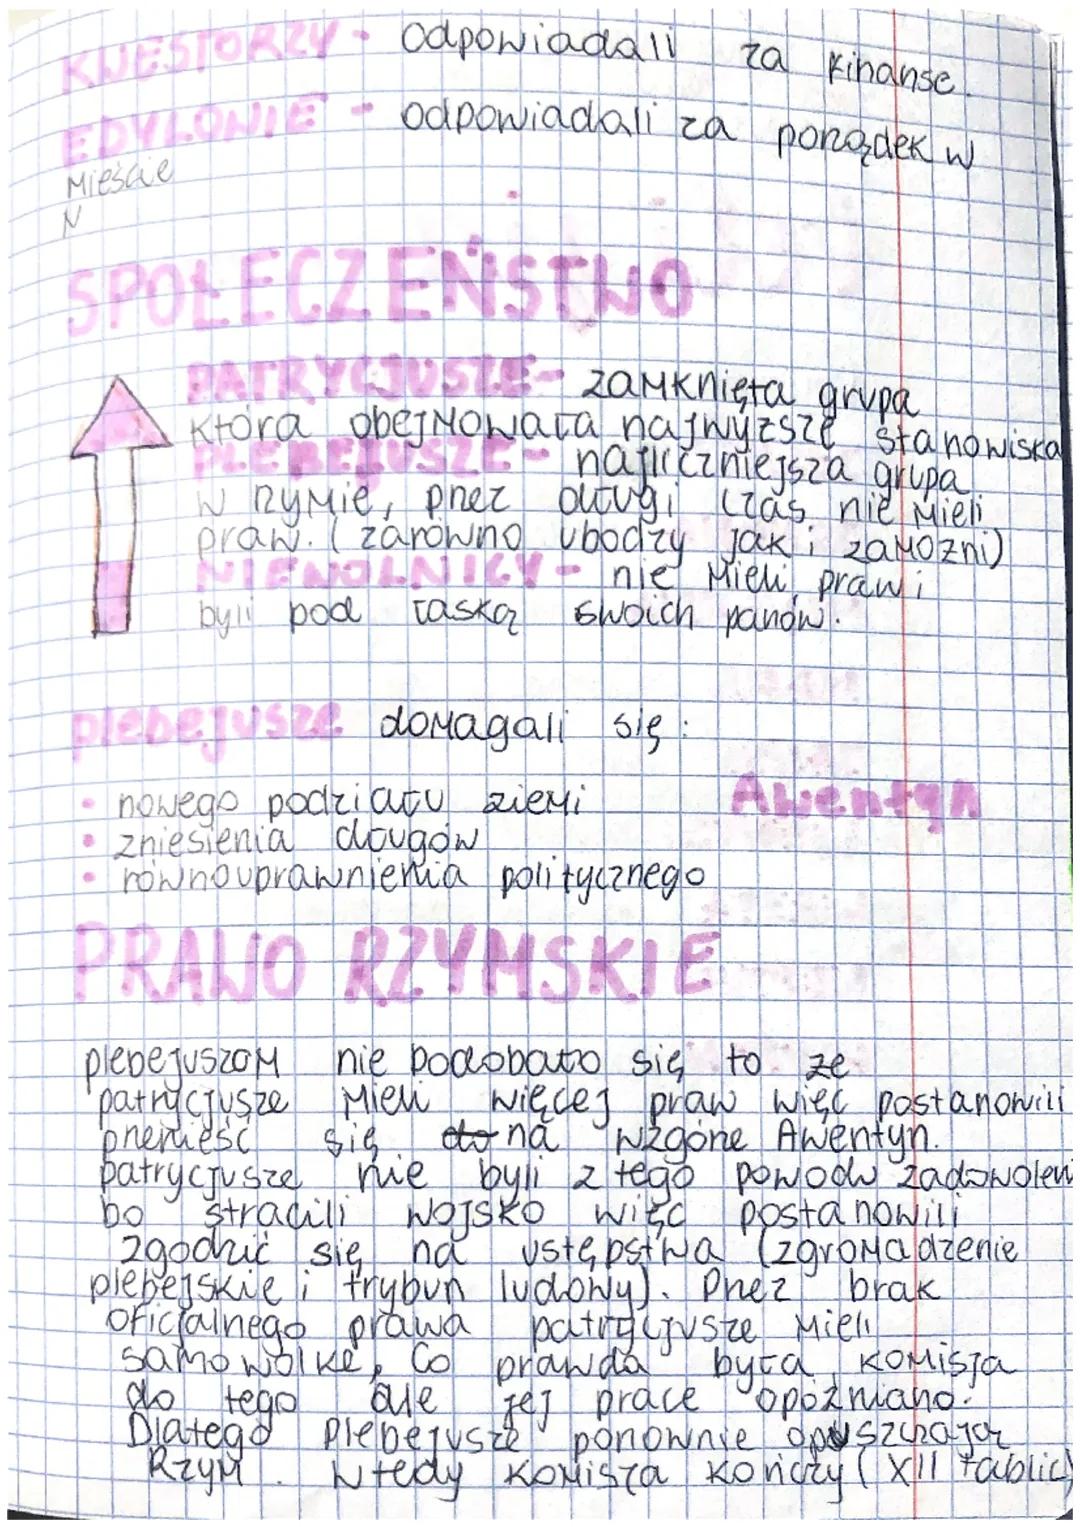 KWESTORZY - odpowiadali za finanse.
EDYLOWIE - odpowiadali za porządek w
mieście
N
SPOŁECZEŃSTWO
PATRYCJUSZE - zamknięta grupa
która obejmowała najwyższe stanowiska
PLEBEJUSZE - najliczniejsza grupa
w rzymie, przez długi czas nie mieli
praw. (zarówno ubodzy jak i zamożni)
NIEWOLNICY - nie mieli praw i
byli pod łaską swoich panów.
plebejusze domagali się:
• nowego podziału ziemi
Awentyn
• zniesienia dougów
• równouprawnienia politycznego
PRAWO RZYMSKIE
plebejuszom nie podobało się to że
patrycjusze mieli więcej praw więc postanowili
przenieść się do na wzgórze Awentyn.
patrycjusze nie byli z tego powodu zadowoleni
bo stracili wojsko więc postanowili
zgodzić się na ustępstwa (zgromadzenie
plebejskie i trybun ludowy). Przez brak
oficjalnego prawa patrycjusze mieli
samowolkę, co prawda była komisja
do tego ale jej prace opóźniano.
Dlatego plebejusze ponownie opuszczają
Rzym. Wtedy komisja kończy (XII tablic)